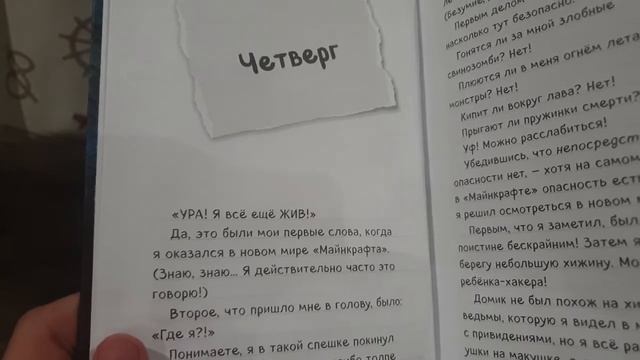 Четверг
«УРА! Я ВСЁ ЕЩЁ ЖИВ!»
Да, это были мои первые слова, когда
я оказался в новом мире «Майнкрафта».
(Знаю, знаю... Я действительно часто это
говорю!)
Второе, что пришло мне в голову, было:
«Где я?!»
Понимаете, я в такой спешке покинул
толпе
(Безумие,
Первым делом
насколько тут безопасно.
Гонятся ли за мной злобные
свинозомби? Нет!
Плюются ли в меня огнём
монстры? Нет!
Кипит ли вокруг лава? Нет!
Прыгают ли пружинки смерти?
Уф! Можно расслабиться!
Убедившись, что непосредст
опасности нет, – хотя на самом
в «Майнкрафте» опасность ест
я решил осмотреться в новом м
Первым, что я заметил, был
поистине бескрайним! Затем я
берегу небольшую хижину. Мо
ребёнка-хакера!
Домик не был похож на хи
ведьмы, которую я видел в
с привидениями, но я всё ра
ушки на макушке